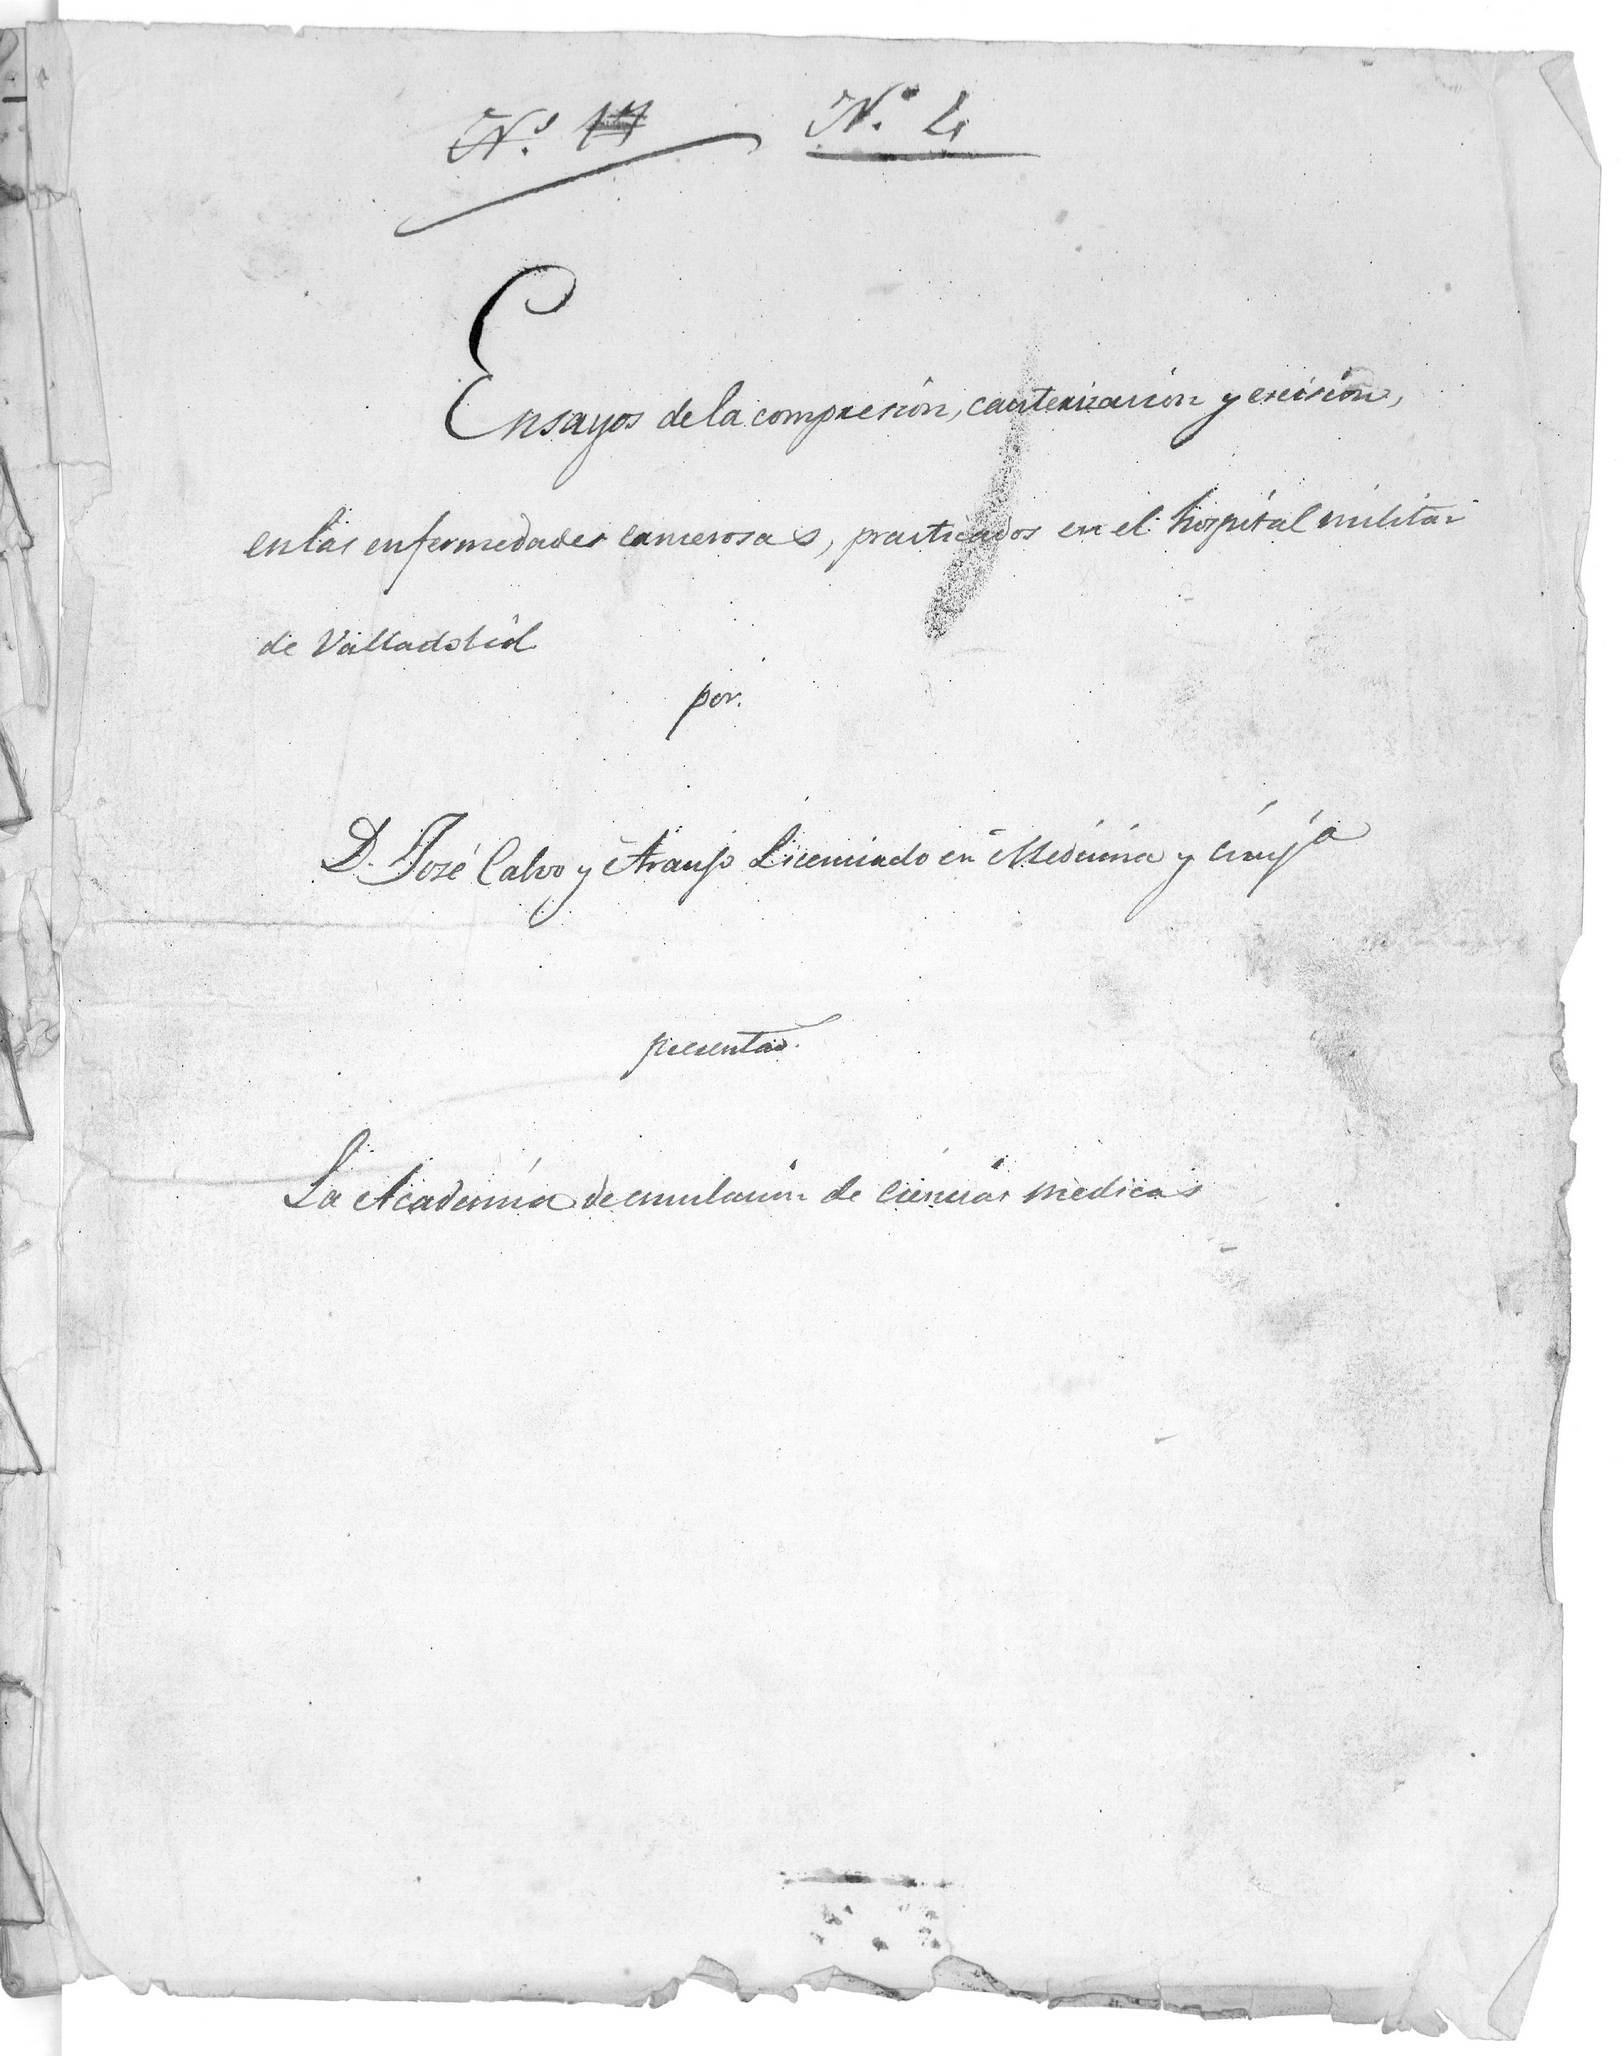 Nº Nº 4
Ensayos de la compresión, cauterización y escisión,
en las enfermedades cancerosas, practicados en el hospital militar
de Valladolid
por.
D. José Calvo y Araujo Licenciado en Medicina y ciruja
presentad.
La Academia de emulación de ciencias medicas